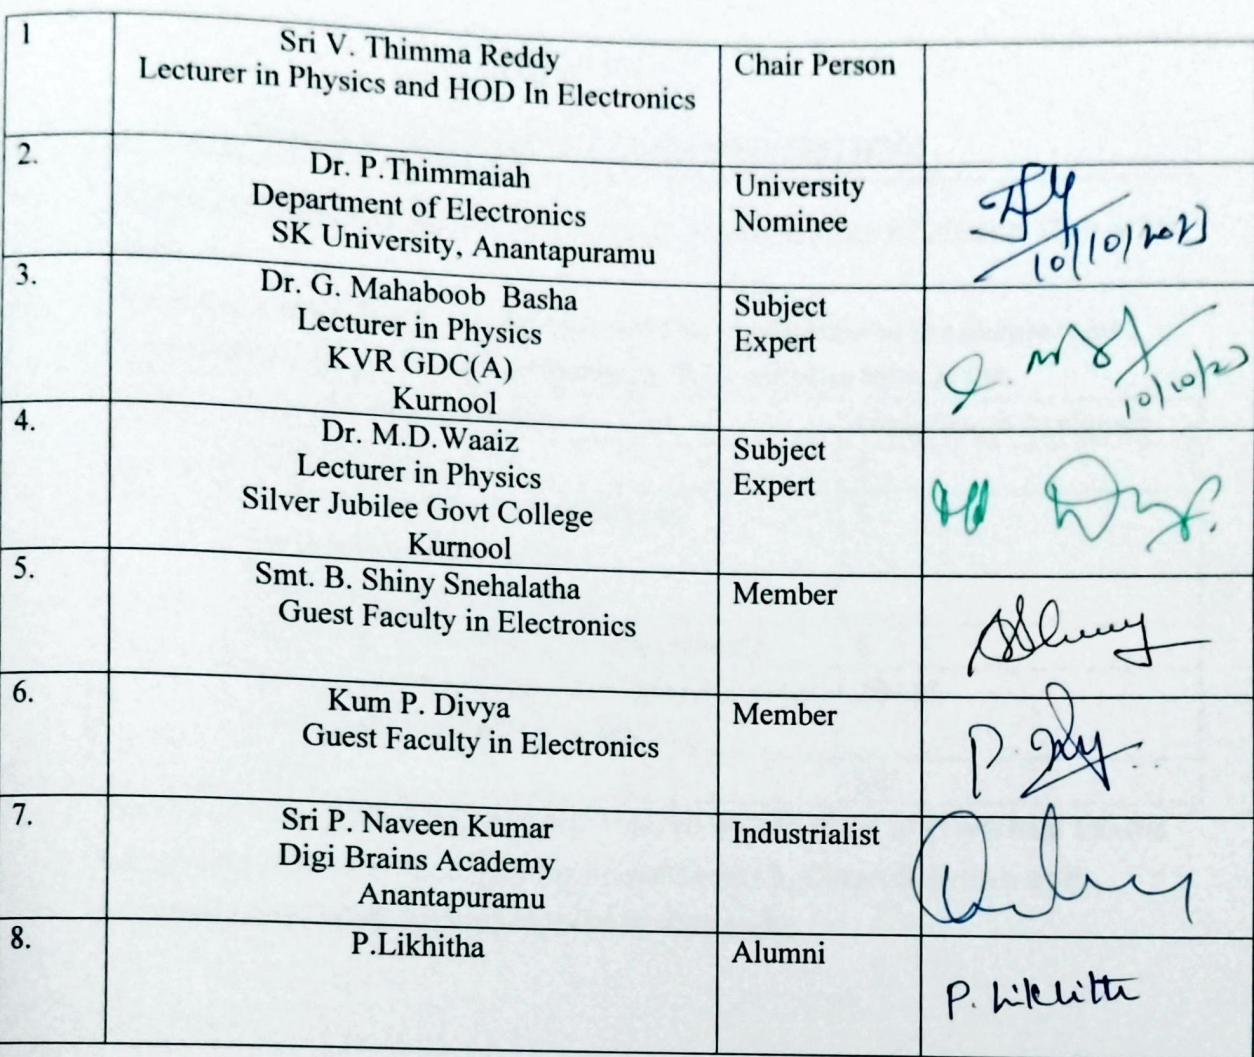 1
Sri V. Thimma Reddy
Lecturer in Physics and HOD In Electronics
Chair Person
2.
Dr. P.Thimmaiah
Department of Electronics
SK University, Anantapuramu
University
Nominee
10/10/2023
3.
Dr. G. Mahaboob Basha
Lecturer in Physics
KVR GDC(A)
Kurnool
Subject
Expert
10/10/23
4.
Dr. M.D.Waaiz
Lecturer in Physics
Silver Jubilee Govt College
Kurnool
Subject
Expert
5.
Smt. B. Shiny Snehalatha
Guest Faculty in Electronics
Member
6.
Kum P. Divya
Guest Faculty in Electronics
Member
7.
Sri P. Naveen Kumar
Digi Brains Academy
Anantapuramu
Industrialist
8.
P.Likhitha
Alumni
P. Likhitha